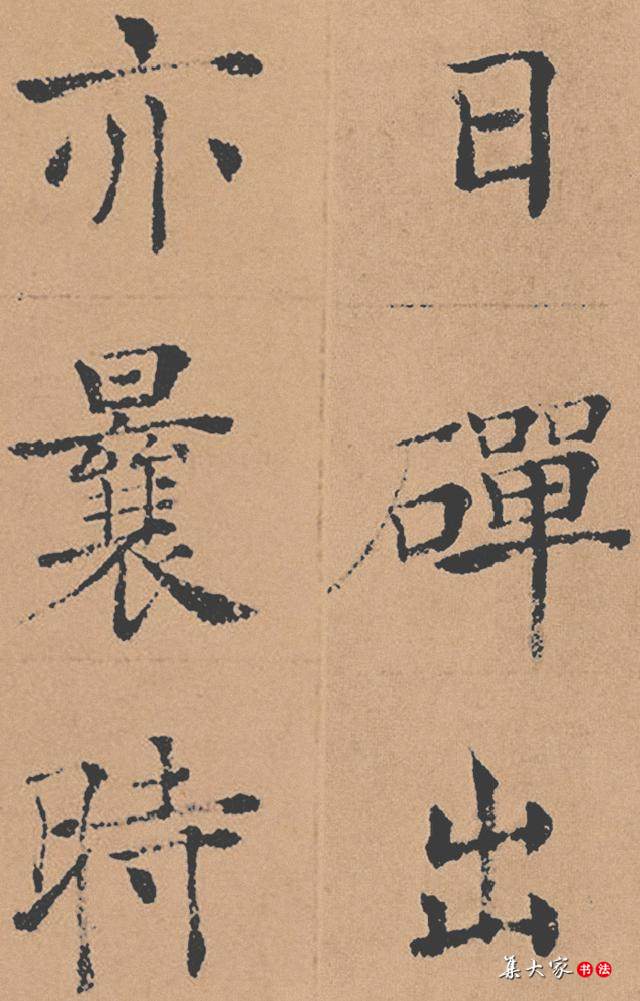 日磾出
亦曩時
集大家书法